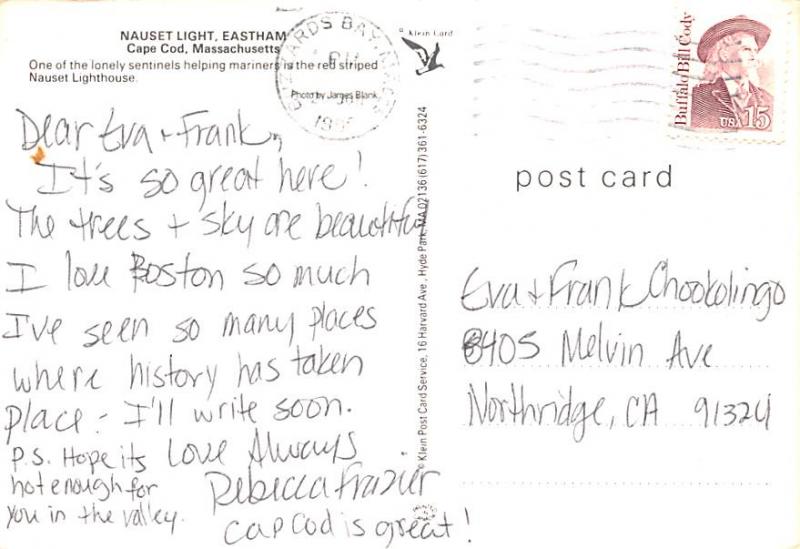 NAUSET LIGHT, EASTHAM
Cape Cod, Massachusetts
One of the lonely sentinels helping mariners is the red striped
Nauset Lighthouse.
Photo by James Blank
© Klein Card
Dear Eva + Frank,
It's so great here!
The trees + sky are beautiful
I love Boston so much
I've seen so many places
where history has taken
place - I'll write soon.
Love Always
Rebecca Frazier
P.S. Hope its
hot enough for
you in the valley.
Cap Cod is great!
© Klein Post Card Service, 16 Harvard Ave., Hyde Park, MA 02136 (617) 361-6324
BUZZARDS BAY, MA
Buffalo Bill Cody
USA 15
post card
Eva + Frank Chookolingo
8405 Melvin Ave
Northridge, CA 91324